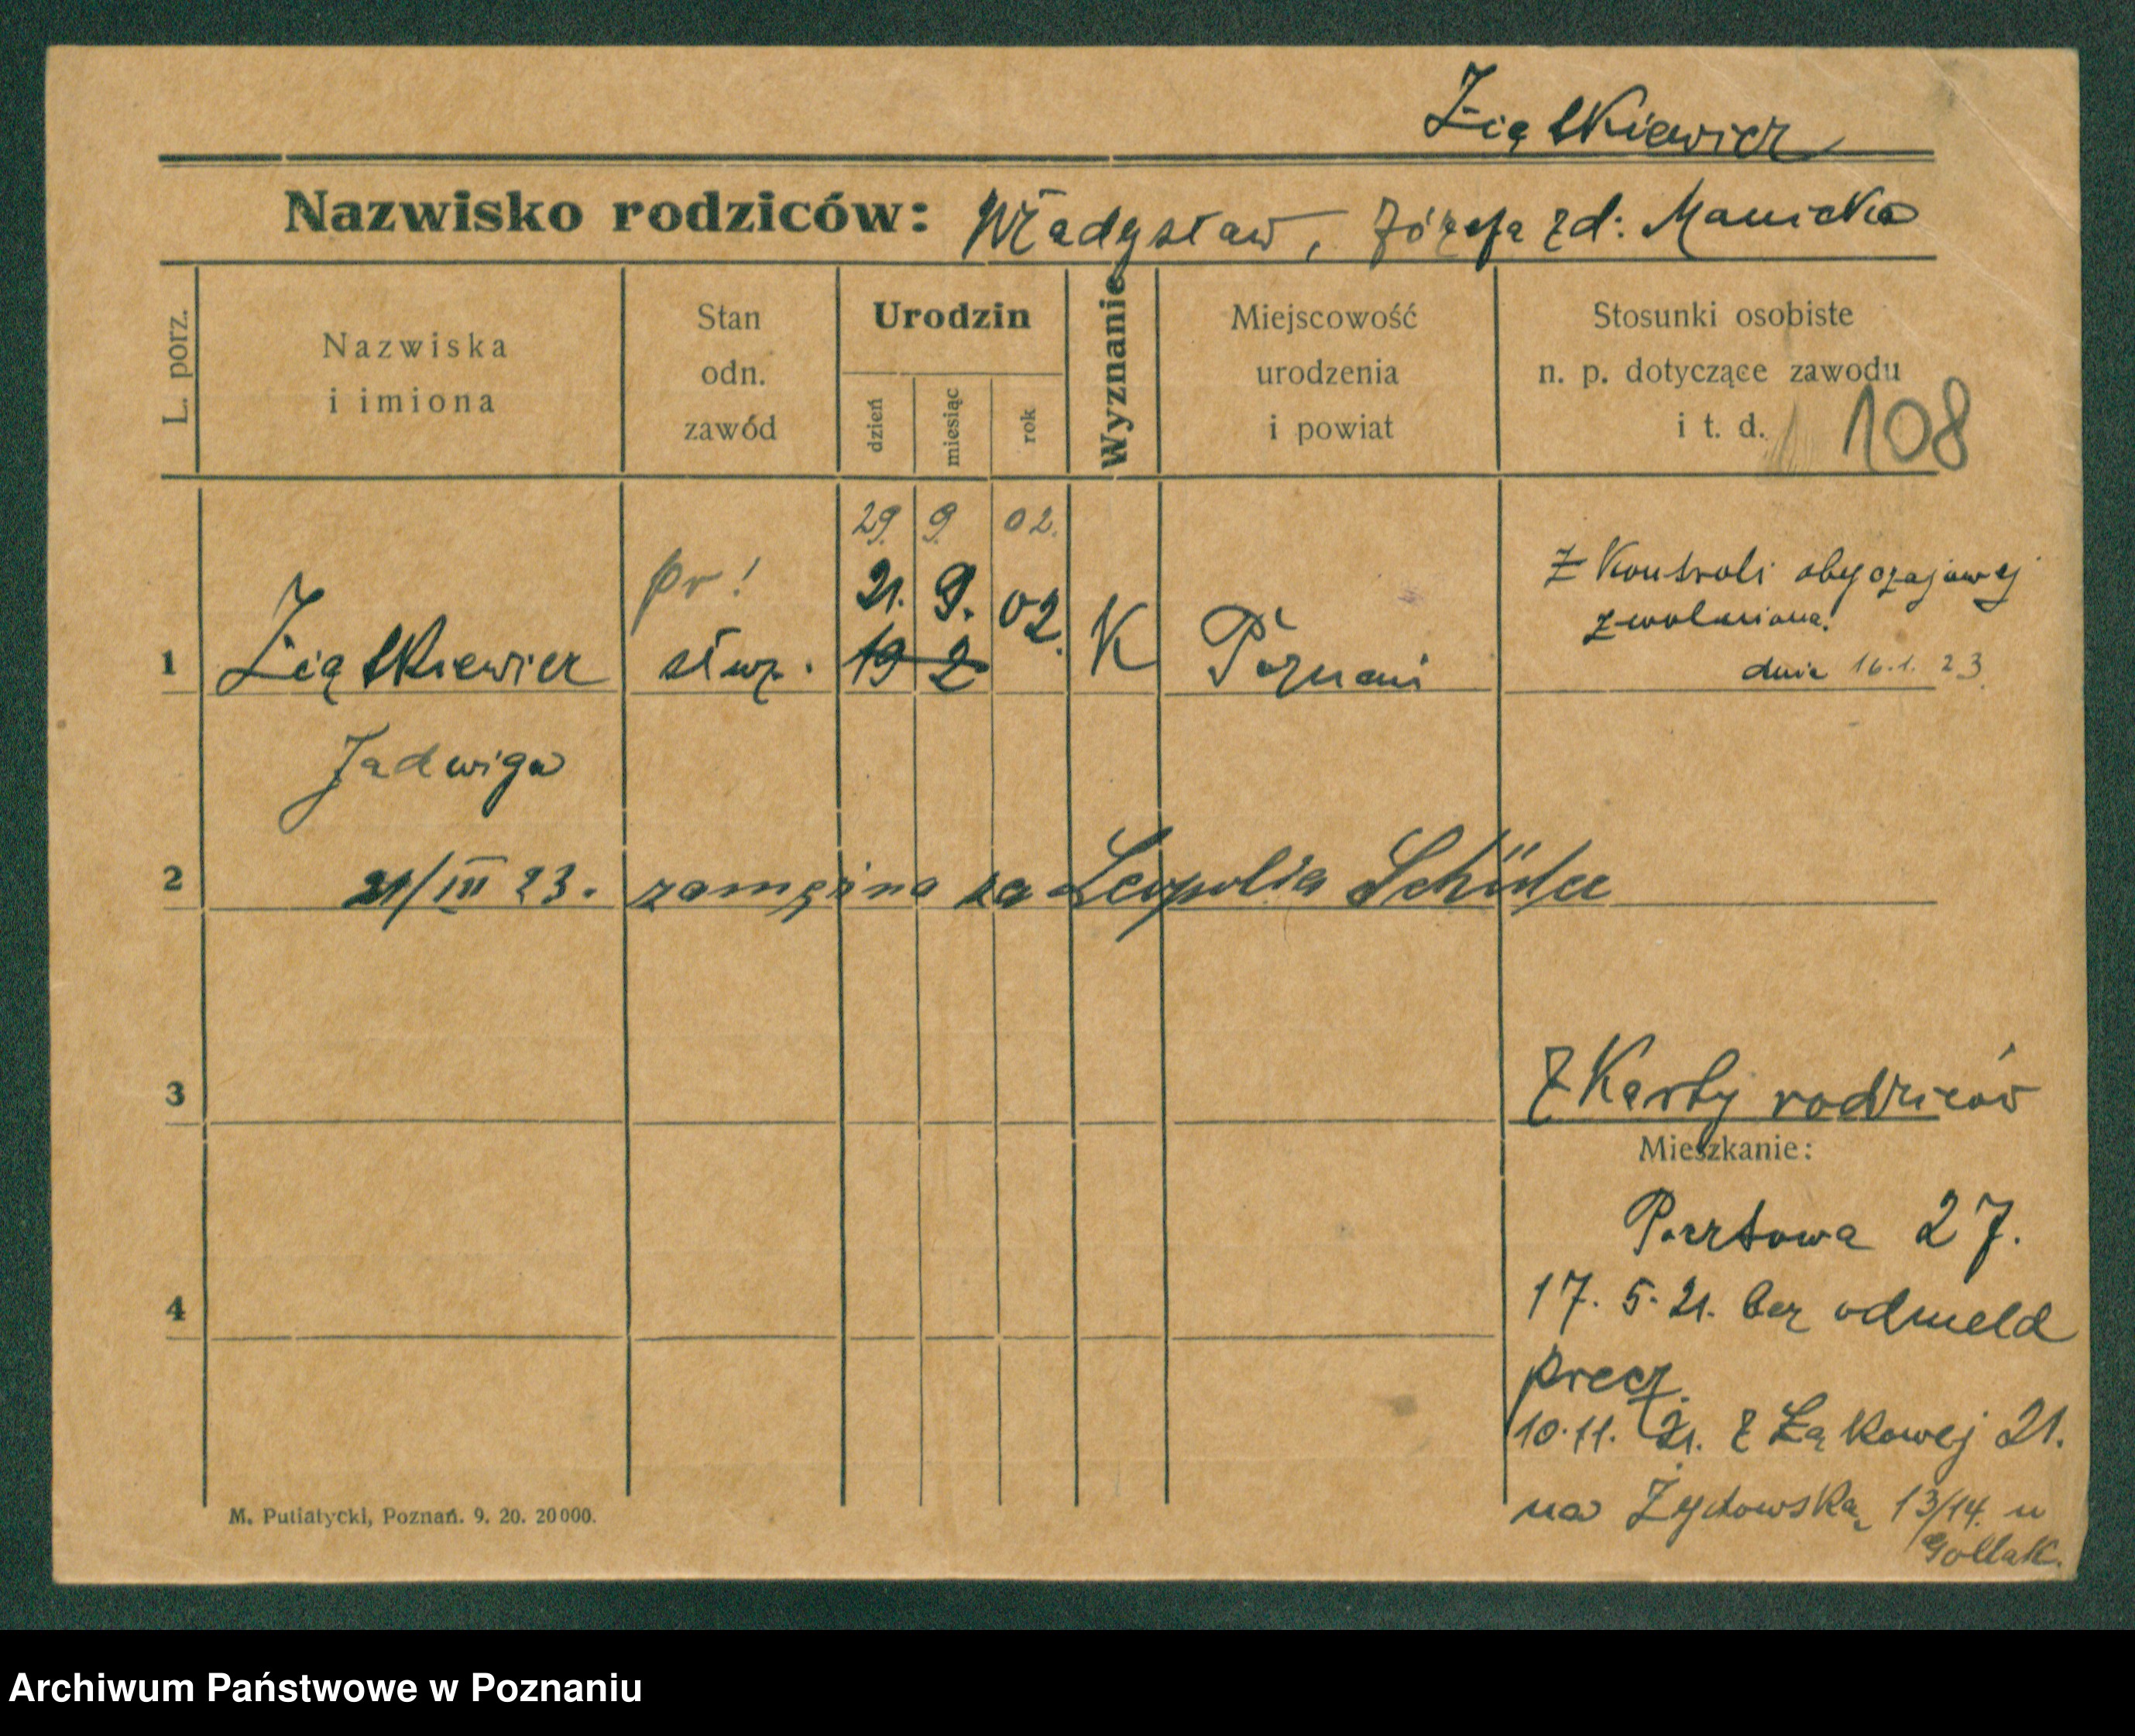 Ziątkiewicz
Nazwisko rodziców: Władysław, Józefa zd: Manicka
L. porz.
Nazwiska
i imiona
Stan
odn.
zawód
Urodzin
dzień
miesiąc
rok
Wyznanie
Miejscowość
urodzenia
i powiat
Stosunki osobiste
n. p. dotyczące zawodu
i t. d. 108
29. 9. 02.
pr!
21. 9. 02.
Z Kontroli obyczajowej
zwolniona.
dnia 16.1.23
1 Ziątkiewicz służ. 19 2 K Poznań
Jadwiga
2 21/III 23. zamężna za Leopolda
3
Z Karty rodziców
Mieszkanie:
Pocztowa 27.
17. 5. 21. bez odmeld
precz.
4
10.11. 21. z Łąkowej 21.
na Żydowską 13/14. u
M. Putiatycki, Poznań. 9. 20. 20000.
Archiwum Państwowe w Poznaniu